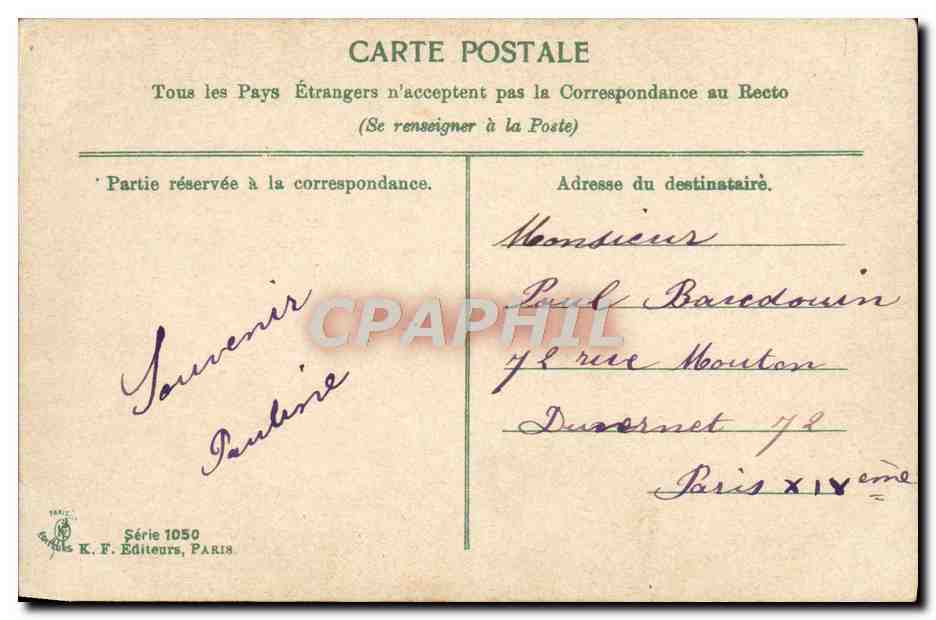 CARTE POSTALE
Tous les Pays Étrangers n'acceptent pas la Correspondance au Recto
(Se renseigner à la Poste)
Partie réservée à la correspondance.
Adresse du destinataire.
Souvenir
Pauline
Monsieur
Paul Baudouin
72 rue Mouton
Duvernet 72
Paris XIVème
CPAPHIL
PARIS
EDITEURS
Série 1050
K. F. Éditeurs, PARIS